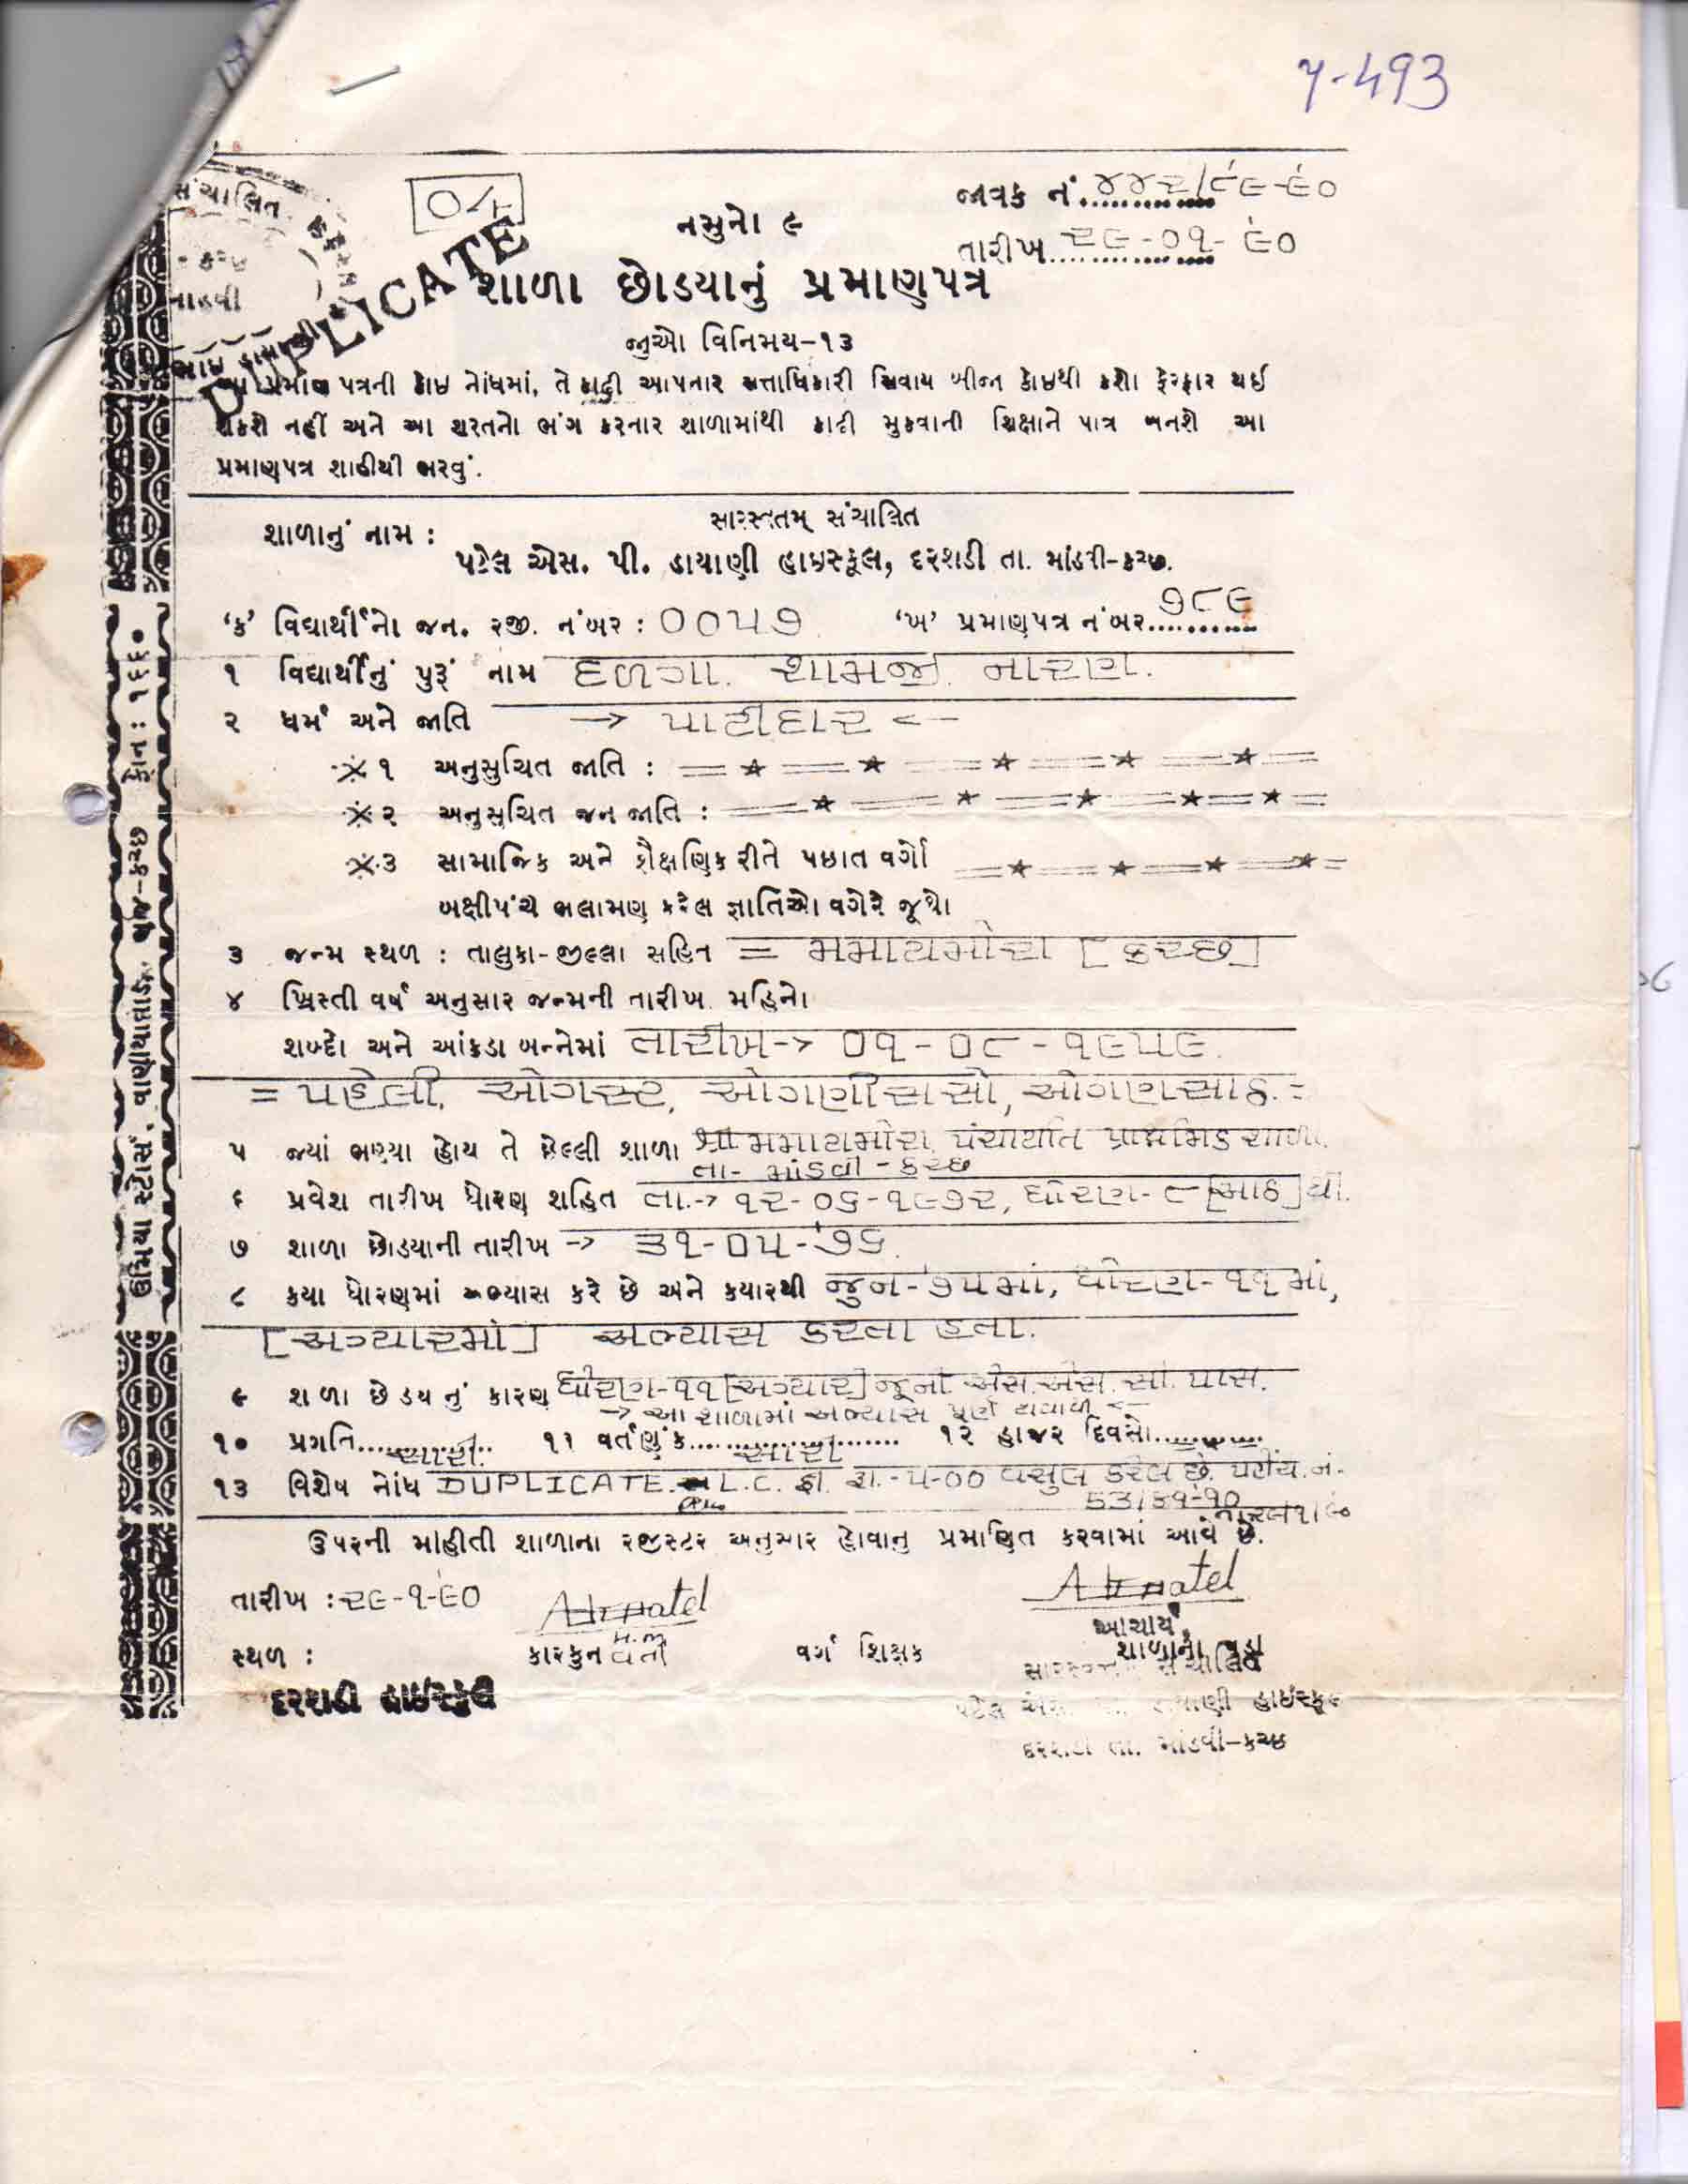 ૫-493
સંચાલિત
04
જાવક નં. ૪૪૨/૮૯-૯૦
નમુનો ૯
તારીખ ૨૯-૦૧-૯૦
DUPLICATE
શાળા છોડયાનું પ્રમાણપત્ર
જુઓ વિનિમય-૧૩
પ્રમાણ પત્રની કોઇ નોંધમાં, તે કાઢી આપનાર સત્તાધિકારી સિવાય બીજા કોઇથી કશો ફેરફાર થઈ
શકશે નહીં અને આ શરતનો ભંગ કરનાર શાળામાંથી કાઢી મુકવાની શિક્ષાને પાત્ર બનશે આ
પ્રમાણપત્ર શાહીથી ભરવું.
સારસ્વતમ્ સંચાલિત
શાળાનું નામ :
પટેલ એસ. પી. ડાયાણી હાઇસ્કૂલ, દરશડી તા. માંડવી-કચ્છ.
‘ક’ વિદ્યાર્થીનો જન. રજી. નંબર : ૦૦૫૭ ‘ખ’ પ્રમાણપત્ર નંબર ૭૮૯
૧ વિદ્યાર્થીનું પુરૂં નામ દળગા. શામજી. નારાણ.
૨ ધર્મ અને જાતિ → પાટીદાર ←
૧ અનુસુચિત જાતિ :
૨ અનુસુચિત જન જાતિ :
૩ સામાજિક અને શૈક્ષણિક રીતે પછાત વર્ગો
બક્ષીપંચ ભલામણ કરેલ જ્ઞાતિઓ વગેરે જૂથો
૩ જન્મ સ્થળ : તાલુકા-જીલ્લા સહિત = મમાયમોરા [કચ્છ]
૪ ખ્રિસ્તી વર્ષ અનુસાર જન્મની તારીખ મહિનો
શબ્દો અને આંકડા બન્નેમાં તારીખ-> ૦૧-૦૮-૧૯૫૯.
= પહેલી, ઓગસ્ટ, ઓગણીસસો, ઓગણસાઠ. =
૫ જ્યાં ભણ્યા હોય તે છેલ્લી શાળા શ્રી મમાયમોરા પંચાયતિ પ્રાથમિક શાળા
તા- માંડવી - કચ્છ
૬ પ્રવેશ તારીખ ધોરણ સહિત તા.-> ૧૨-૦૬-૧૯૭૨, ધોરણ-૮ [આઠ] થી.
૭ શાળા છોડયાની તારીખ -> ૩૧-૦૫-'૭૬.
૮ કયા ધોરણમાં અભ્યાસ કરે છે અને કયારથી જુન-'૭૫માં, ધોરણ-૧૧માં,
[અગ્યારમાં] અભ્યાસ કરતા હતા.
૯ શાળા છોડયાનું કારણ ધોરણ-૧૧ [અગ્યાર] જૂની એસ.એસ.સી. પાસ.
-> આ શાળામાં અભ્યાસ પૂર્ણ થવાથી <-
૧૦ પ્રગતિ સારી. ૧૧ વર્તણુંક સારી ૧૨ હાજર દિવસો
૧૩ વિશેષ નોંધ DUPLICATE. L.C. ફી. રૂા.-૫-૦૦ વસુલ કરેલ છે. પહોંચ. નં.-
ઉપરની માહીતી શાળાના રજીસ્ટર અનુસાર હોવાનુ પ્રમાણિત કરવામાં આવે છે.
તારીખ : ૨૯-૧-૯૦
આચાર્ય,
સ્થળ : કારકુન વતી H.M વર્ગ શિક્ષક શાળાના વડા
સારસ્વતમ્ સંચાલિત
દરશડી હાઇસ્કુલ
પટેલ એસ. પી. ડાયાણી હાઇસ્કૂલ
દરશડી તા. માંડવી-કચ્છ
ઉમિયા સ્ટોર્સ, વાણીયાવાડ, ભુજ-કચ્છ ફોન : ૧૬૬૦